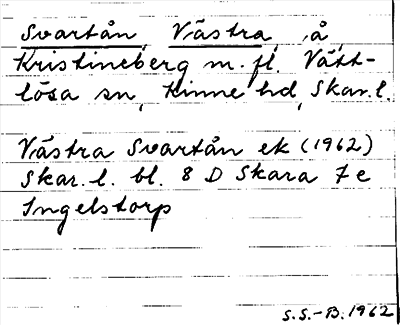 Svartån, Västra, å,
Kristineberg m. fl. Vätt-
lösa sn, Kinne hd, Skar. l.
Västra Svartån ek (1962)
Skar. l. bl. 8 D Skara 7 e
Ingelstorp
S.S.-B. 1962